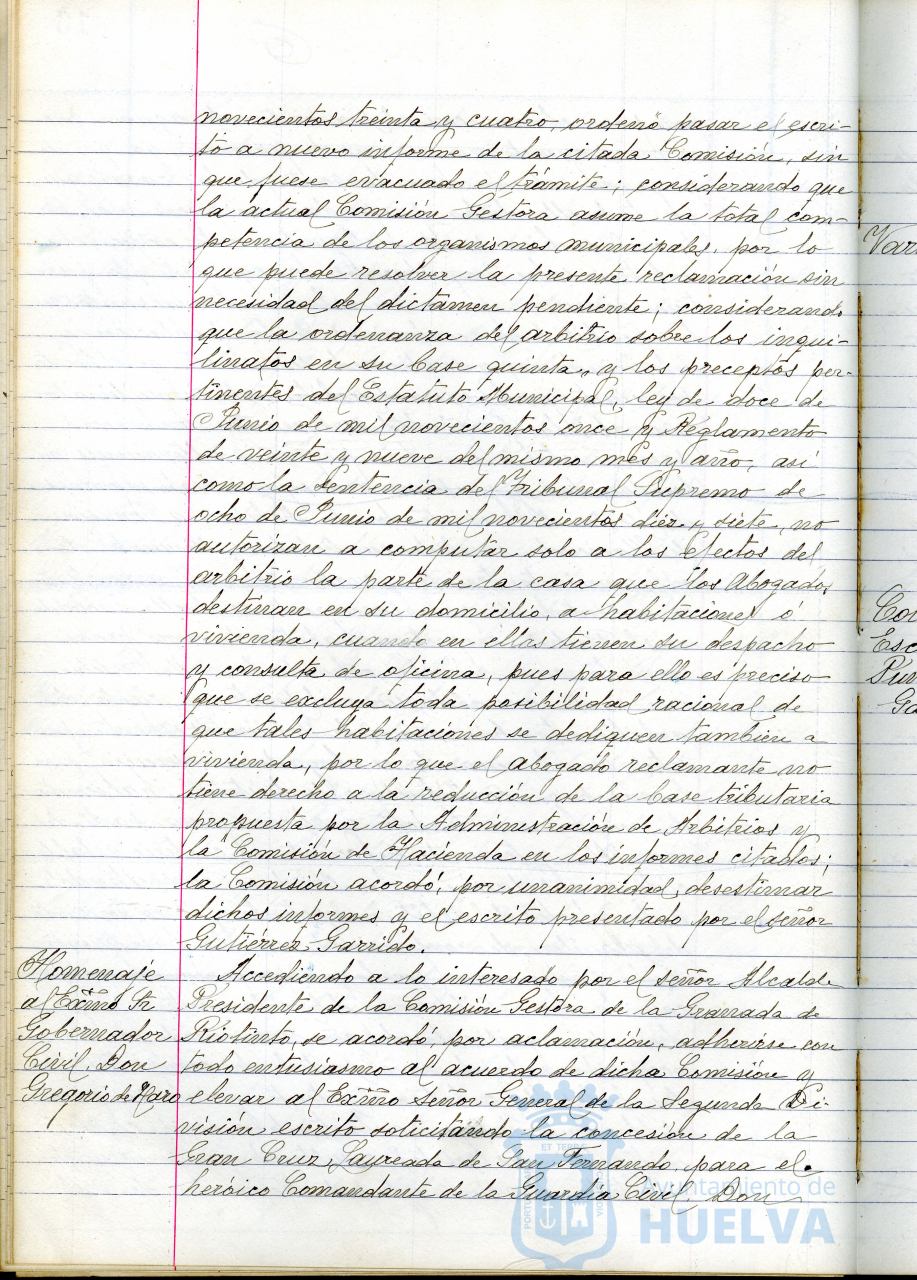 novecientos treinta y cuatro, ordenó pasar el escri-
to a nuevo informe de la citada Comisión, sin
que fuese evacuado el trámite; considerando que
la actual Comisión Gestora asume la total com-
petencia de los organismos municipales, por lo
que puede resolver la presente reclamación sin
necesidad del dictamen pendiente; considerando
que la ordenanza del arbitrio sobre los inqui-
linatos en su base quinta, y los preceptos per-
tinentes del Estatuto Municipal, ley de doce de
Junio de mil novecientos once y Reglamento
de veinte y nueve del mismo mes y año, así
como la sentencia del Tribunal Supremo de
ocho de Junio de mil novecientos diez y siete, no
autorizan a computar solo a los efectos del
arbitrio la parte de la casa que los Abogados
destinan en su domicilio, a habitaciones ó
vivienda, cuando en ellas tienen su despacho
y consulta de oficina, pues para ello es preciso
que se excluya toda posibilidad racional de
que tales habitaciones se dediquen también a
vivienda, por lo que el Abogado reclamante no
tiene derecho a la reducción de la base tributaria
propuesta por la Administración de Arbitrios y
la Comisión de Hacienda en los informes citados;
la Comisión acordó, por unanimidad, desestimar
dichos informes y el escrito presentado por el señor
Gutiérrez Garrido.
Homenaje
al Excmo Sr
Gobernador
Civil, Don
Gregorio de Haro
Accediendo a lo interesado por el señor Alcalde
Presidente de la Comisión Gestora de la Granada de
Riotinto, se acordó, por aclamación, adherirse con
todo entusiasmo al acuerdo de dicha Comisión y
elevar al Excmo Señor General de la Segunda Di-
visión escrito solicitando la concesión de la
Gran Cruz Laureada de San Fernando, para el
heróico Comandante de la Guardia Civil Don
Ayuntamiento de
HUELVA